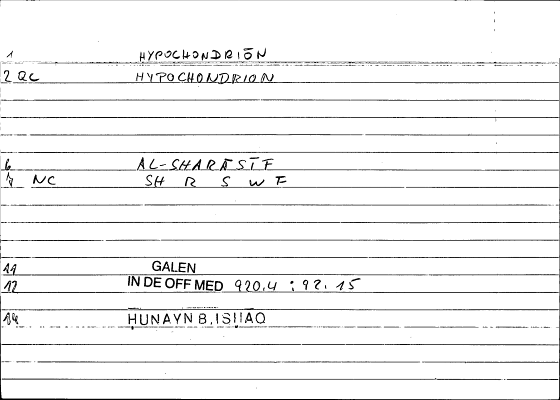 1 HYPOCHONDRIŌN
2 QC HYPOCHONDRION
6 AL-SHARĀSĪF
7 NC SH R S W F
11 GALEN
12 IN DE OFF MED 920.4 : 92.15
14 ḤUNAYN B. ISḤAQ